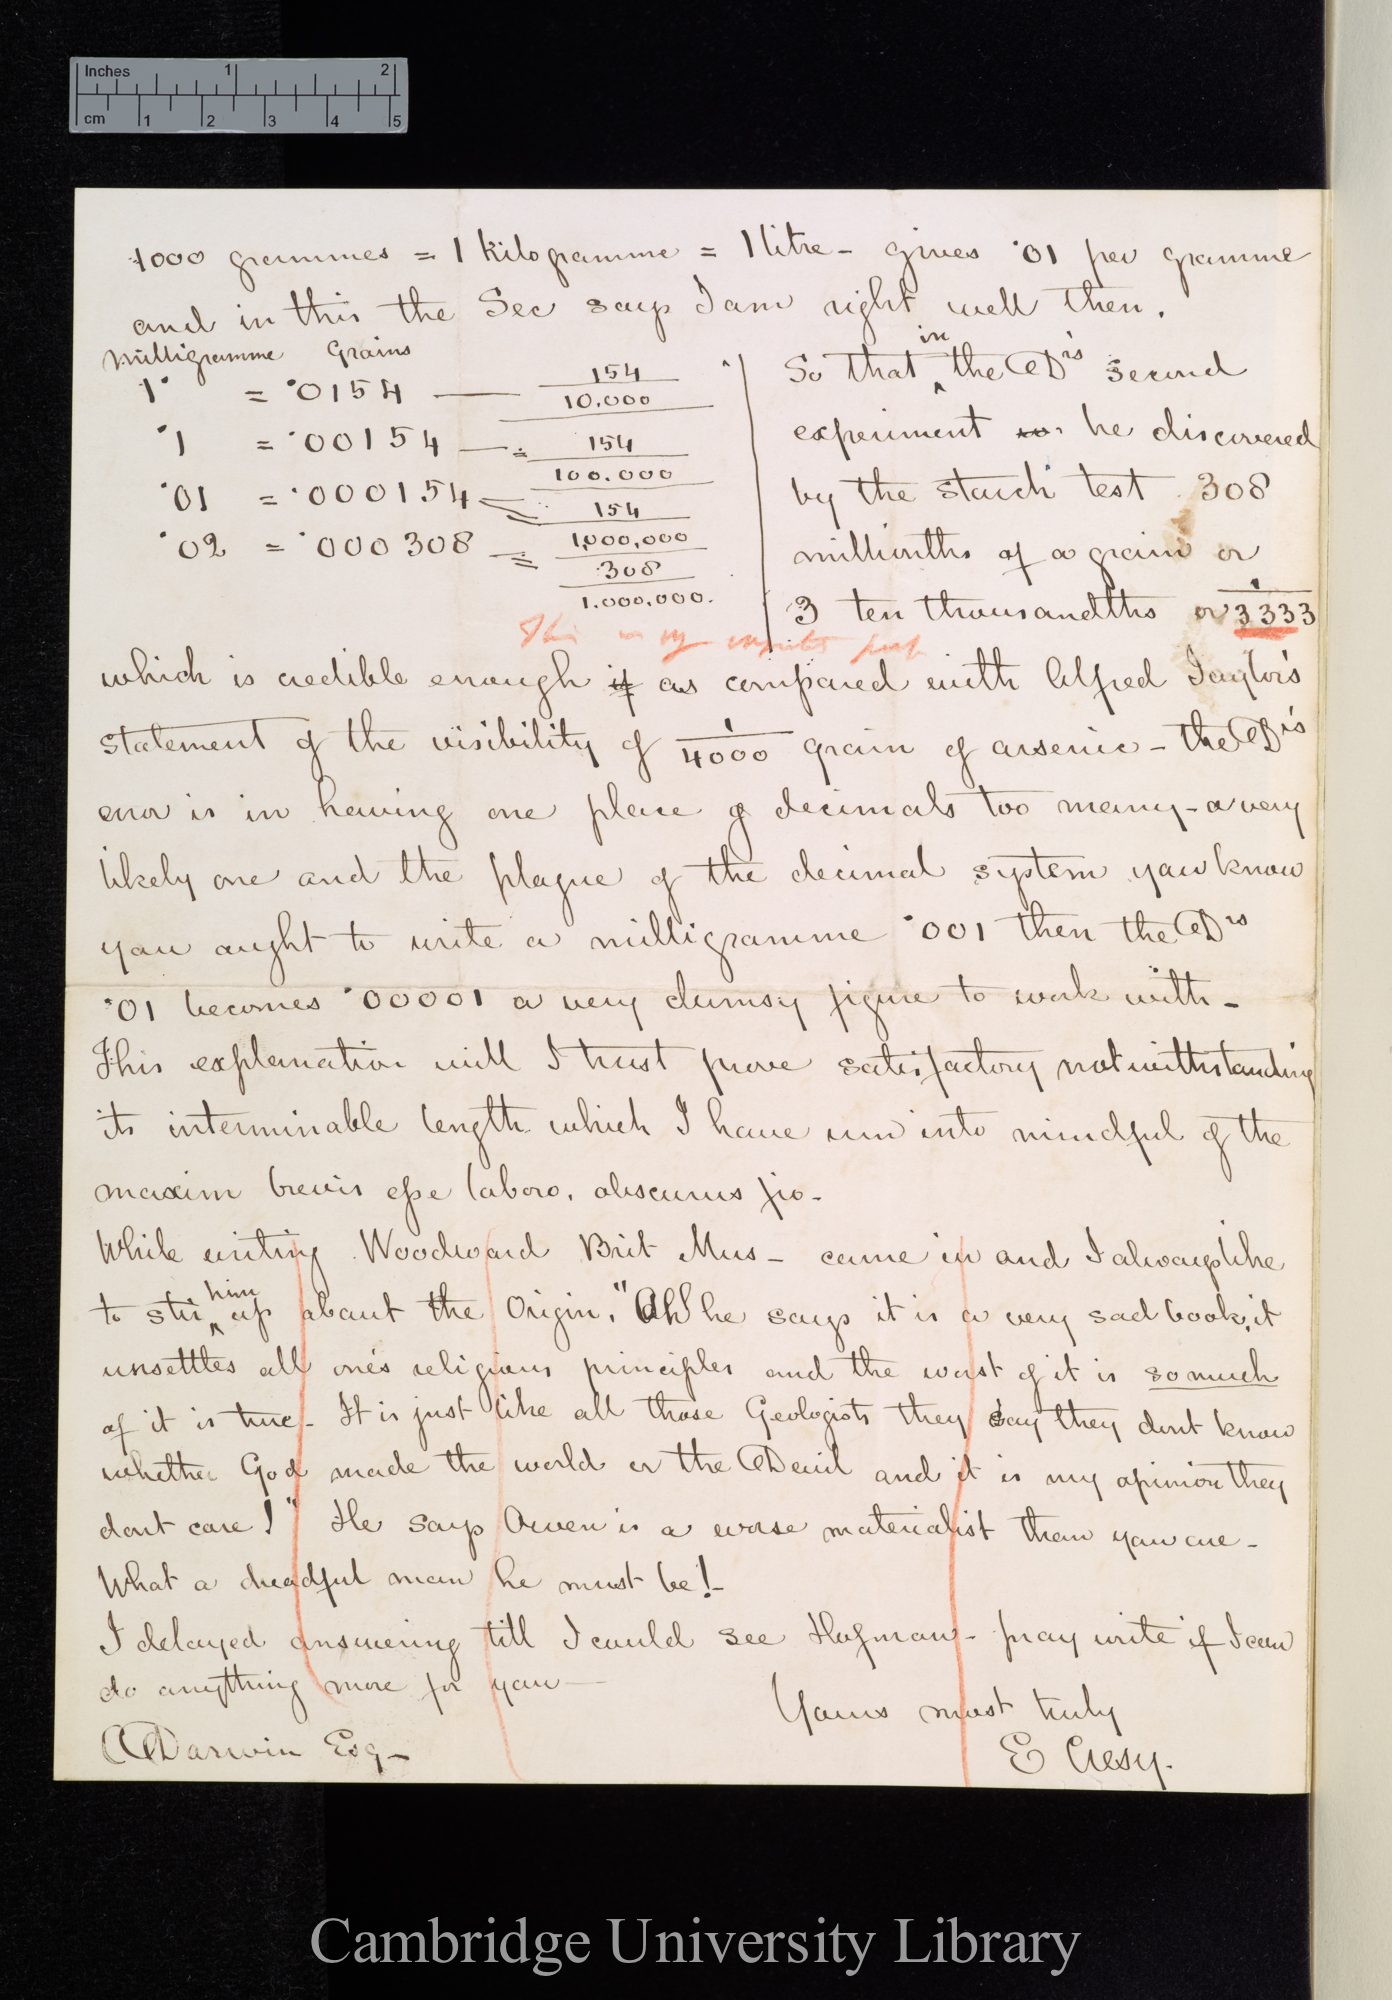 Inches 1 2
cm 1 2 3 4 5
1000 grammes = 1 kilogramme = 1 litre - gives ·01 per gramme
and in this the Sec says I am right well then.
Milligramme Grains
1· = ·0154 — 154/10.000
·1 = ·00154 — = 154/100.000
·01 = ·000154 = 154/1,000,000
·02 = ·000308 = 308/1.000.000.
So that in the Dr's second
experiment he discovered
by the starch test 308
millionths of a grain or
3 ten thousandths or 1/3333
This is my
which is credible enough if as compared with Alfred Taylor's
statement of the visibility of 1/4000 grain of arsenic - the Dr's
error is in having one place of decimals too many - a very
likely one and the plague of the decimal system you know
you aught to write a milligramme ·001 then the Drs
·01 becomes ·00001 a very clumsy figure to work with -
This explanation will I trust prove satisfactory notwithstanding
its interminable length which I have run into mindful of the
maxim brevis esse laboro, obscurus fio -
While writing Woodward Brit Mus - came in and I always like
to stir him up about the Origin, "Ah! he says it is a very sad book, it
unsettles all one's religious principles and the worst of it is so much
of it is true - It is just like all those Geologists they say they dont know
whether God made the world or the Devil and it is my opinion they
dont care!" He says Owen is a worse materialist than you are -
What a dreadful man he must be! -
I delayed answering till I could see Hofman - pray write if I can
do anything more for you —
Yours most truly
C Darwin Esq - E Cresy.
Cambridge University Library